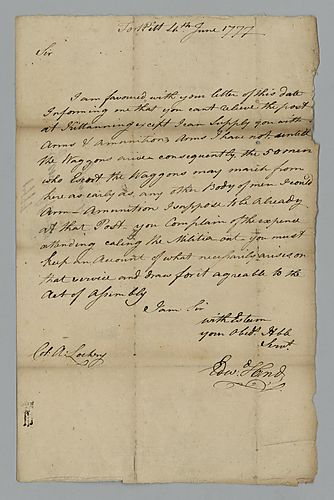 Ft Pitt 4th June 1777
Sir
I am favoured with your letter of this date
Informing me that you cant relieve the post
at Kittanning except I can Supply you with
Arms & Ammunition, Arms I have not untill
the Waggons arive consequently, the 50 men
who Escort the Waggons may march from
here as early as any other Body of men I could
Arm - Amunition I suppose to be Already
at that Post. you Complain of the expence
attending caling the Militia out you must
keep an Account of what necessarily arises on
that service and draw for it agreable to the
Act of Assembly
I am Sir
with Esteem
your Obedt. Hble
Servt.
Edwd. Hand
Col. A. Lochry